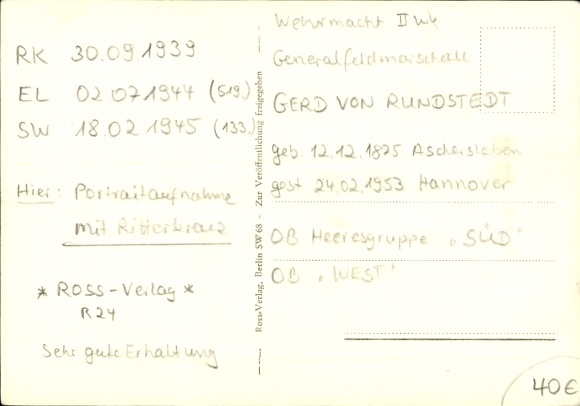 RK 30.09.1939
EL 02.07.1944 (519.)
SW 18.02.1945 (133.)
Hier: Portraitaufnahme
mit Ritterkreuz
* ROSS-Verlag *
R24
Sehr gute Erhaltung
Ross-Verlag, Berlin SW 68 - Zur Veröffentlichung freigegeben
Wehrmacht II Wk
Generalfeldmarschall
GERD VON RUNDSTEDT
geb. 12.12.1875 Aschersleben
gest 24.02.1953 Hannover
OB Heeresgruppe "SÜD"
OB "WEST"
40€